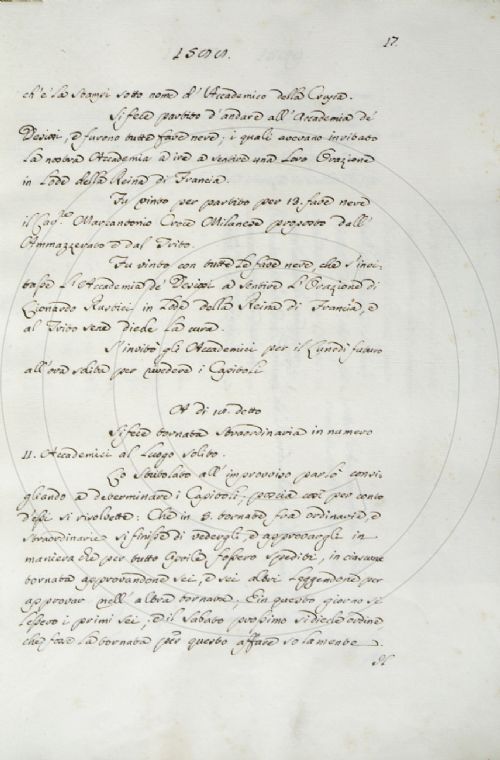 17.
1599.
ch'è la stampi sotto nome d'Accademico della Crusca.
Si fece partito d'andare all'Accademia de'
Desiosi, e furono tutte fave nere; i quali avevano invitato
la nostra Accademia a ire a sentire una loro Orazione
in lode della Reina di Francia.
Fu vinto per partito per 13. fave nere
il Cav.re Marcantonio Croce Milanese proposto dall'
Ammazzerato e dal Trito.
Fu vinto con tutte le fave nere, che s'invi-
tasse l'Accademia de' Desiosi a sentire l'Orazione di
Lionardo Rustici in lode della Reina di Francia, e
al Trito sene diede la cura.
S'invitò gli Accademici per il Lunedì futuro
all'ora solita per rivedere i Capitoli
A di 10. detto
Si fece tornata straordinaria in numero
11. Accademici al luogo solito.
Lo Stritolato all'improvviso parlò consi-
gliando a determinare i Capitoli; poscia così per conto
d'essi si risolvette: Che in 8. tornate fra ordinarie, e
straordinarie si finisse di vedergli, e approvargli in
maniera che per tutto Aprile fossero spediti, in ciascuna
tornata approvandone sei, e sei altri leggendone per
approvar nell'altra tornata; E in questo giorno si
lessero i primi sei; e il Sabato prossimo si diede ordine
che fosse la tornata per questo affare solamente.